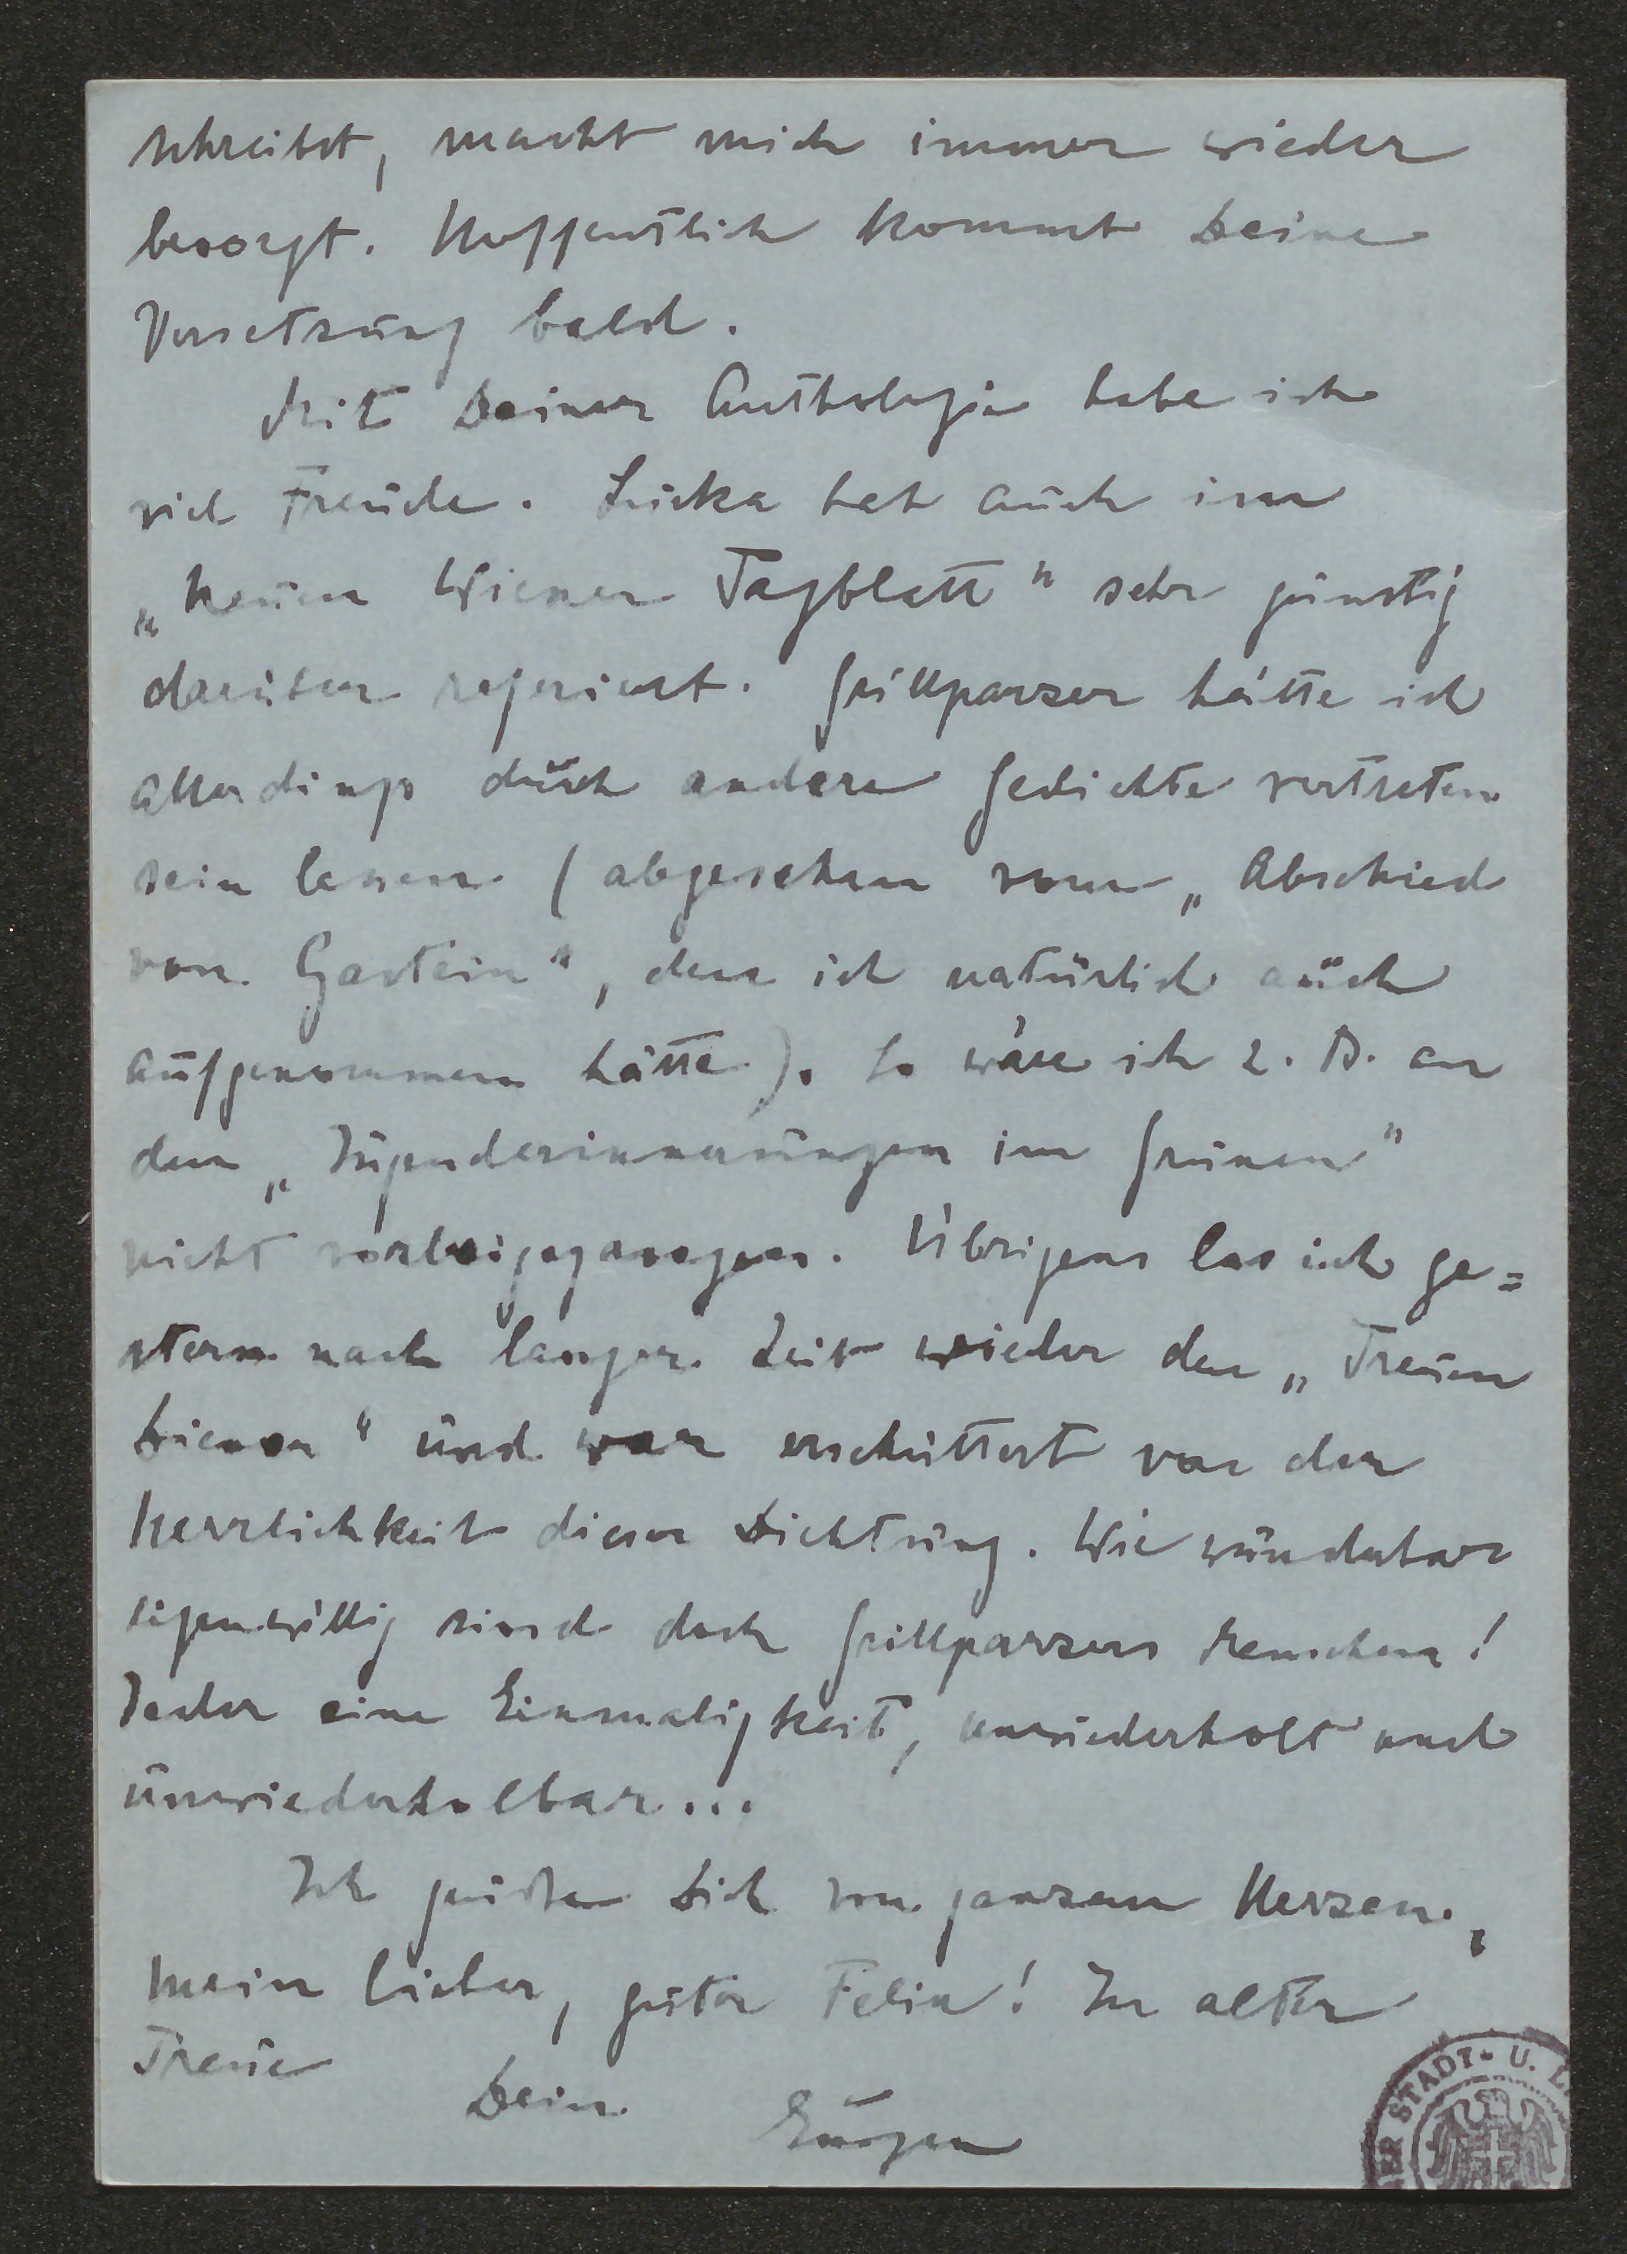 schreibst, macht mich immer wieder
besorgt. Hoffentlich kommt Deine
Versetzung bald.
Mit Deiner Anthologie habe ich
viel Freude. Lucka hat auch im
„Neuen Wiener Tagblatt" sehr günstig
darüber referiert. Grillparzer hätte ich
allerdings durch andere Gedichte vertreten
sein lassen (abgesehen vom „Abschied
von Gastein", den ich natürlich auch
aufgenommen hätte). So wäre ich z. B. an
den „Jugenderinnerungen im Grünen"
nicht vorbeigegangen. Übrigens las ich ge=
stern nach langer Zeit wieder den „Treuen
Diener" und war erschüttert von der
Herrlichkeit dieser Dichtung. Wie wunderbar
eigenwillig sind doch Grillparzers Menschen!
Jeder eine Einmaligkeit, unwiederholt und
unwiederholbar...
Ich grüße Dich von ganzem Herzen,
mein lieber, guter Felix! In alter
Treue
Dein Eugen
ER STADT- U. L